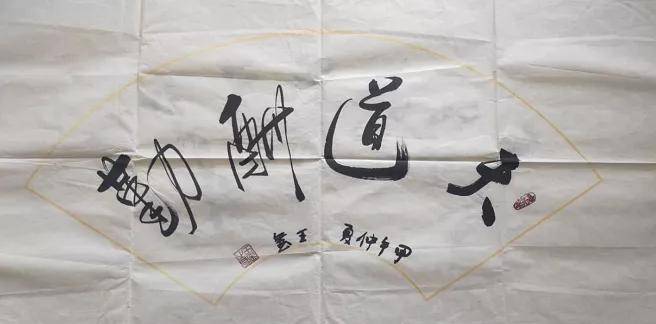 天道酬勤
甲午仲夏 王